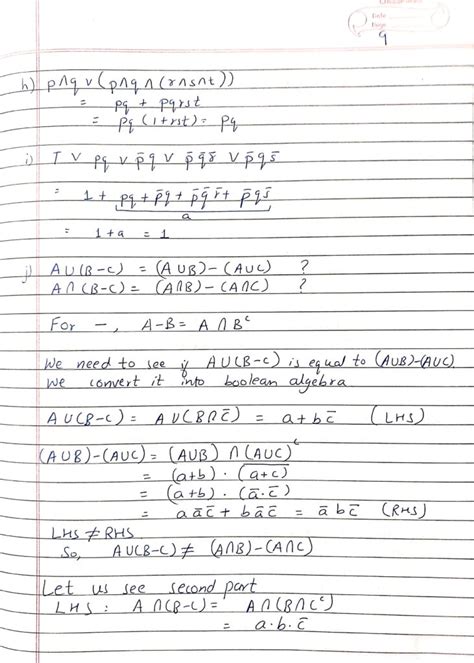 Date
Page
9
h) p∧q ∨ (p∧q ∧ (r∧s∧t))
= pq + pqrst
= pq (1+rst) = pq
i) T ∨ pq ∨ p̄q ∨ p̄q̄r̄ ∨ p̄qs̄
= 1 + pq + p̄q + p̄q̄r̄ + p̄qs̄
a
= 1+a = 1
j) A∪(B-C) = (A∪B)-(A∪C) ?
A∩(B-C) = (A∩B)-(A∩C) ?
For -, A-B = A∩Bᶜ
We need to see if A∪(B-C) is equal to (A∪B)-(A∪C)
We convert it into boolean algebra
A∪(B-C) = A∪(B∩C̄) = a+bc̄ (LHS)
(A∪B)-(A∪C) = (A∪B) ∩ (A∪C)ᶜ
= (a+b) · (a+c)̄
= (a+b) · (ā·c̄)
= aāc̄ + bāc̄ = ābc̄ (RHS)
LHS ≠ RHS
So, A∪(B-C) ≠ (A∩B)-(A∩C)
Let us see second part
LHS : A∩(B-C) = A∩(B∩Cᶜ)
= a·b·c̄